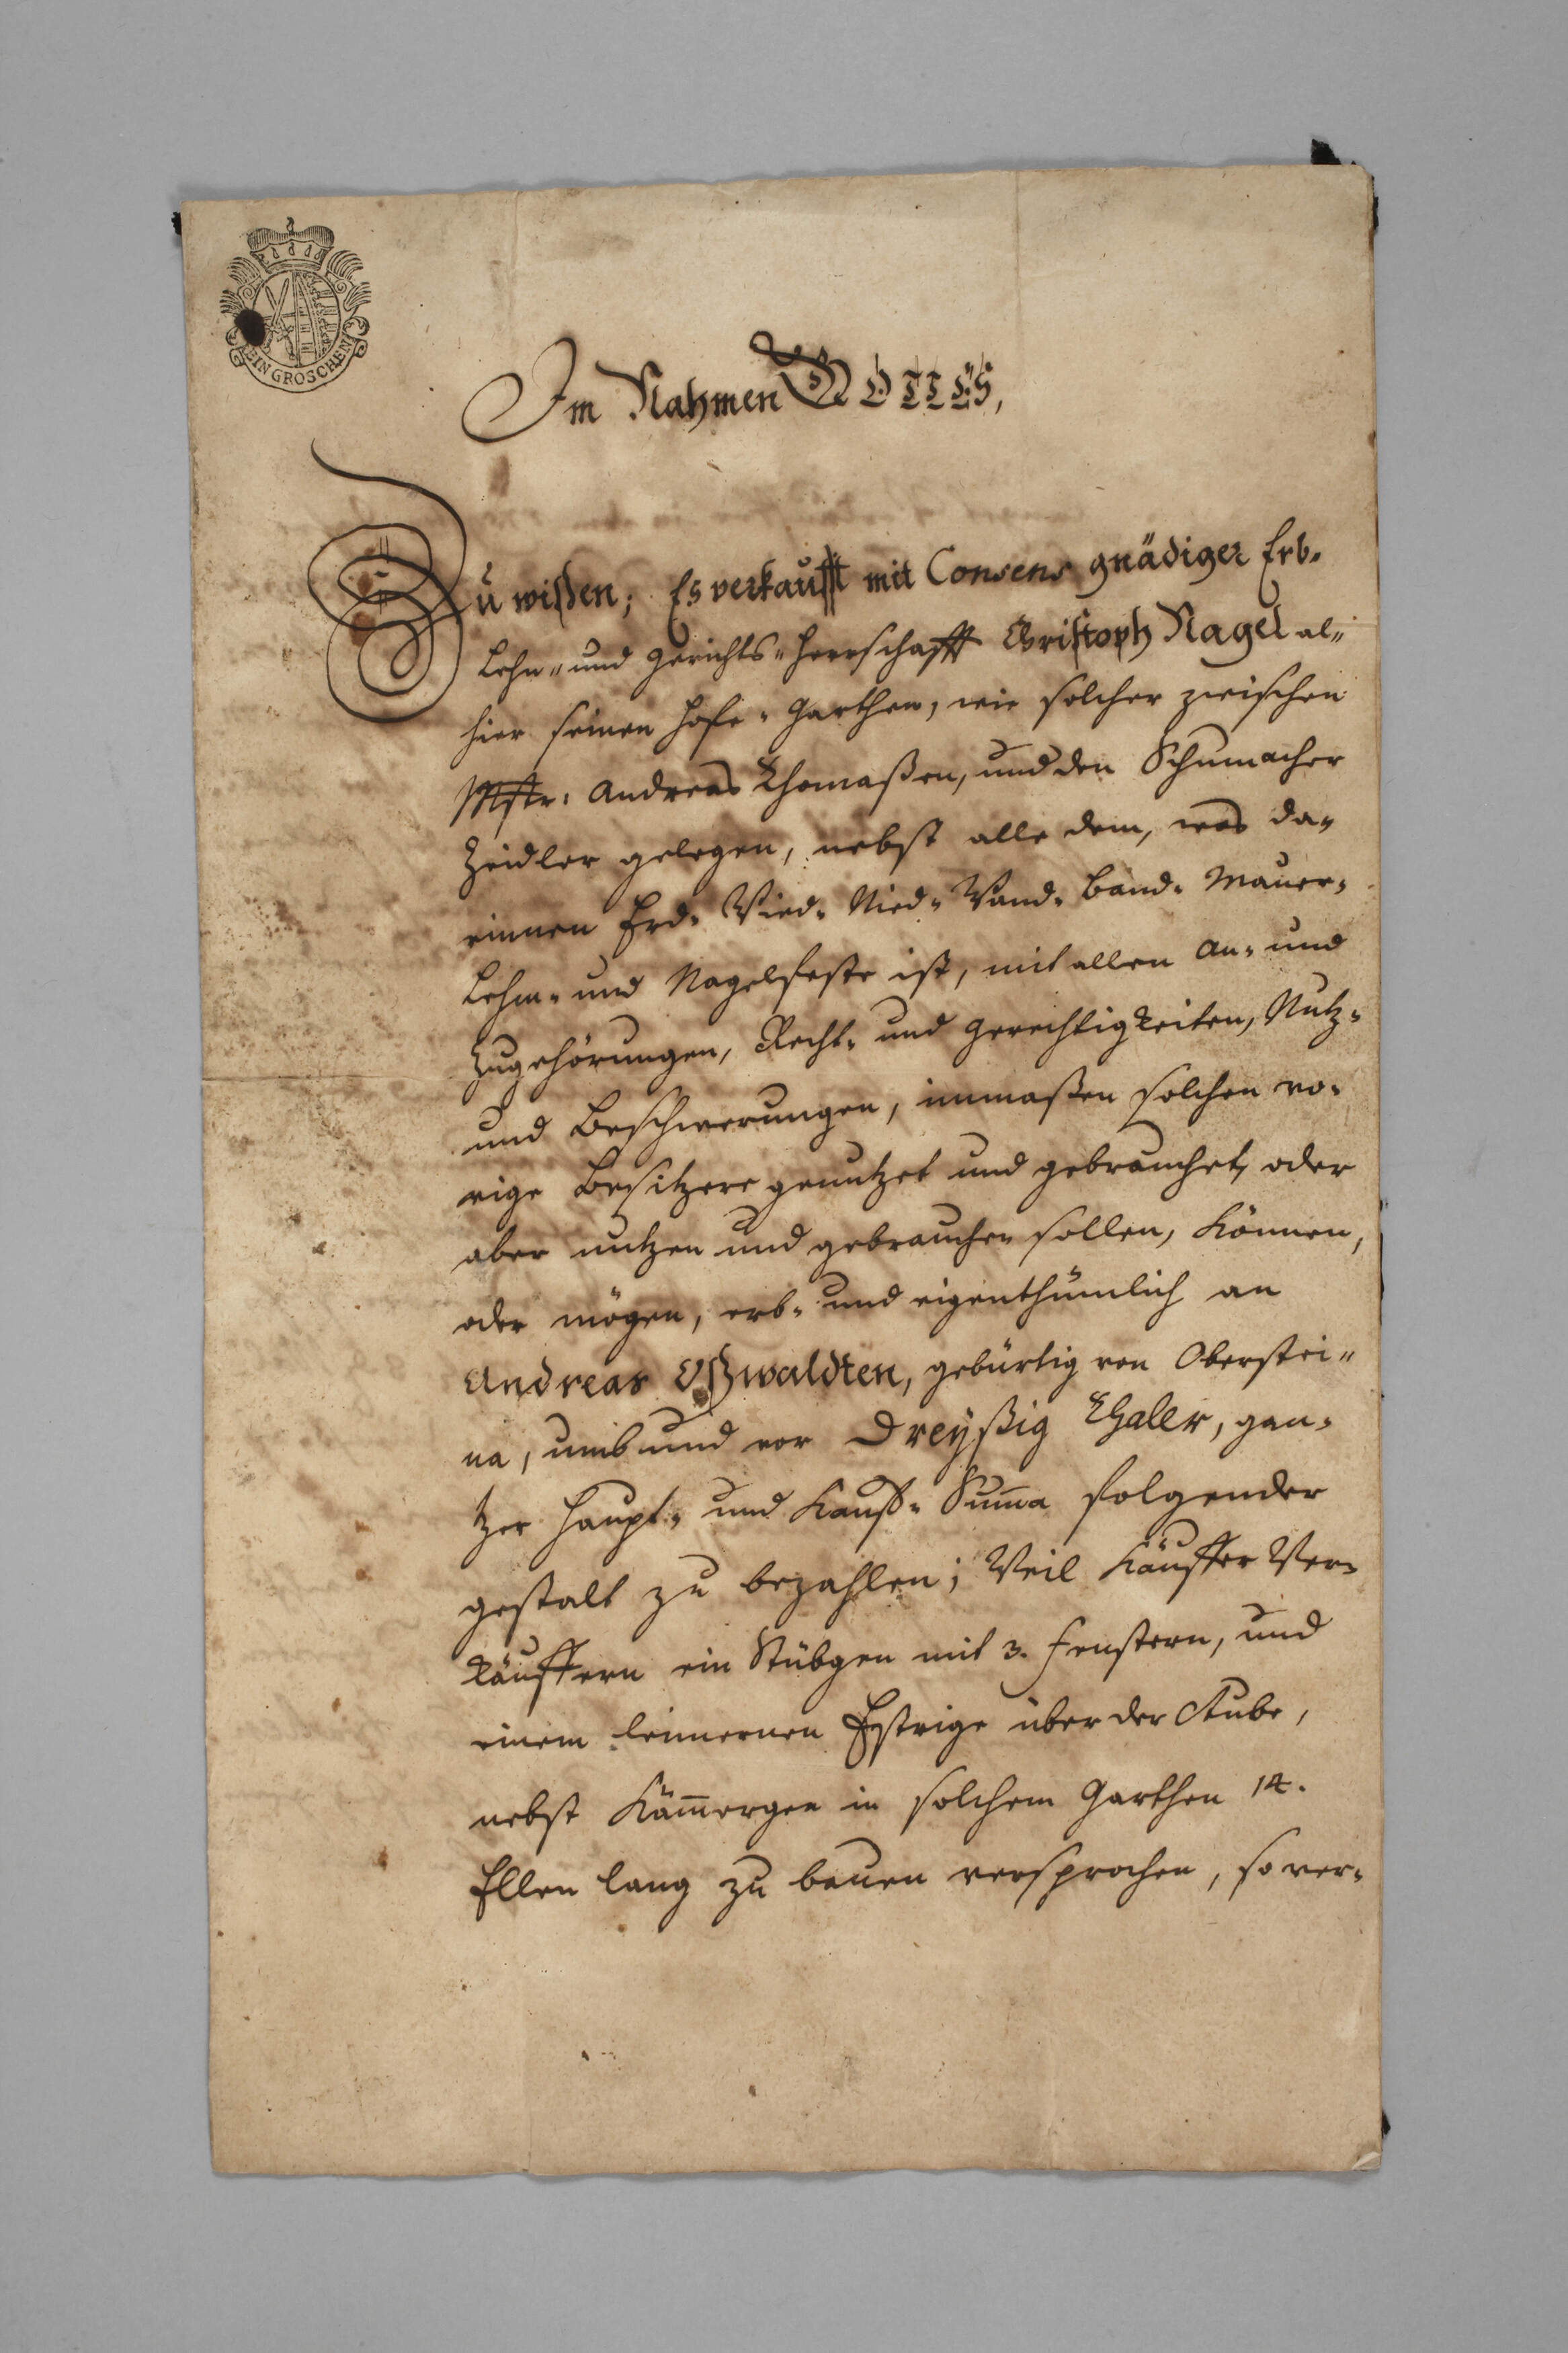 EIN GROSCHEN
Im Nahmen GOTTES,
Zu wißen; Es verkaufft mit Consens gnädiger Erb-
Lehn- und Gerichts-Herrschafft Christoph Nagel al-
hier seinen Hofe-Garthen, wie solcher zwischen
Mstr: Andreas Thomaßen, und den Schumacher
Zeidler gelegen, nebst alle dem, was da-
rinnen Erd- Wied- Nied- Wand- Band- Mauer-
Lehm- und Nagelfeste ist, mit allen An- und
Zugehörungen, Recht- und Gerechtigkeiten, Nutz-
und Beschwerungen, inmaßen solchen vo-
rige Besitzere genutzet und gebrauchet, oder
aber nutzen und gebrauchen sollen, können,
oder mögen, erb- und eigenthümlich an
Andreas Oßwaldten, gebürtig von Oberstei-
na, umb und vor Dreyßig Thaler, gan-
tzer Haupt- und Kauff-Suma folgender
gestalt zu bezahlen; Weil Käuffer Ver-
käuffern ein Stübgen mit 3. Fenstern, und
einem leimernen Estrige über der Stube,
nebst Kämergen in solchem Garthen 14.
Ellen lang zu bauen versprochen, so ver-